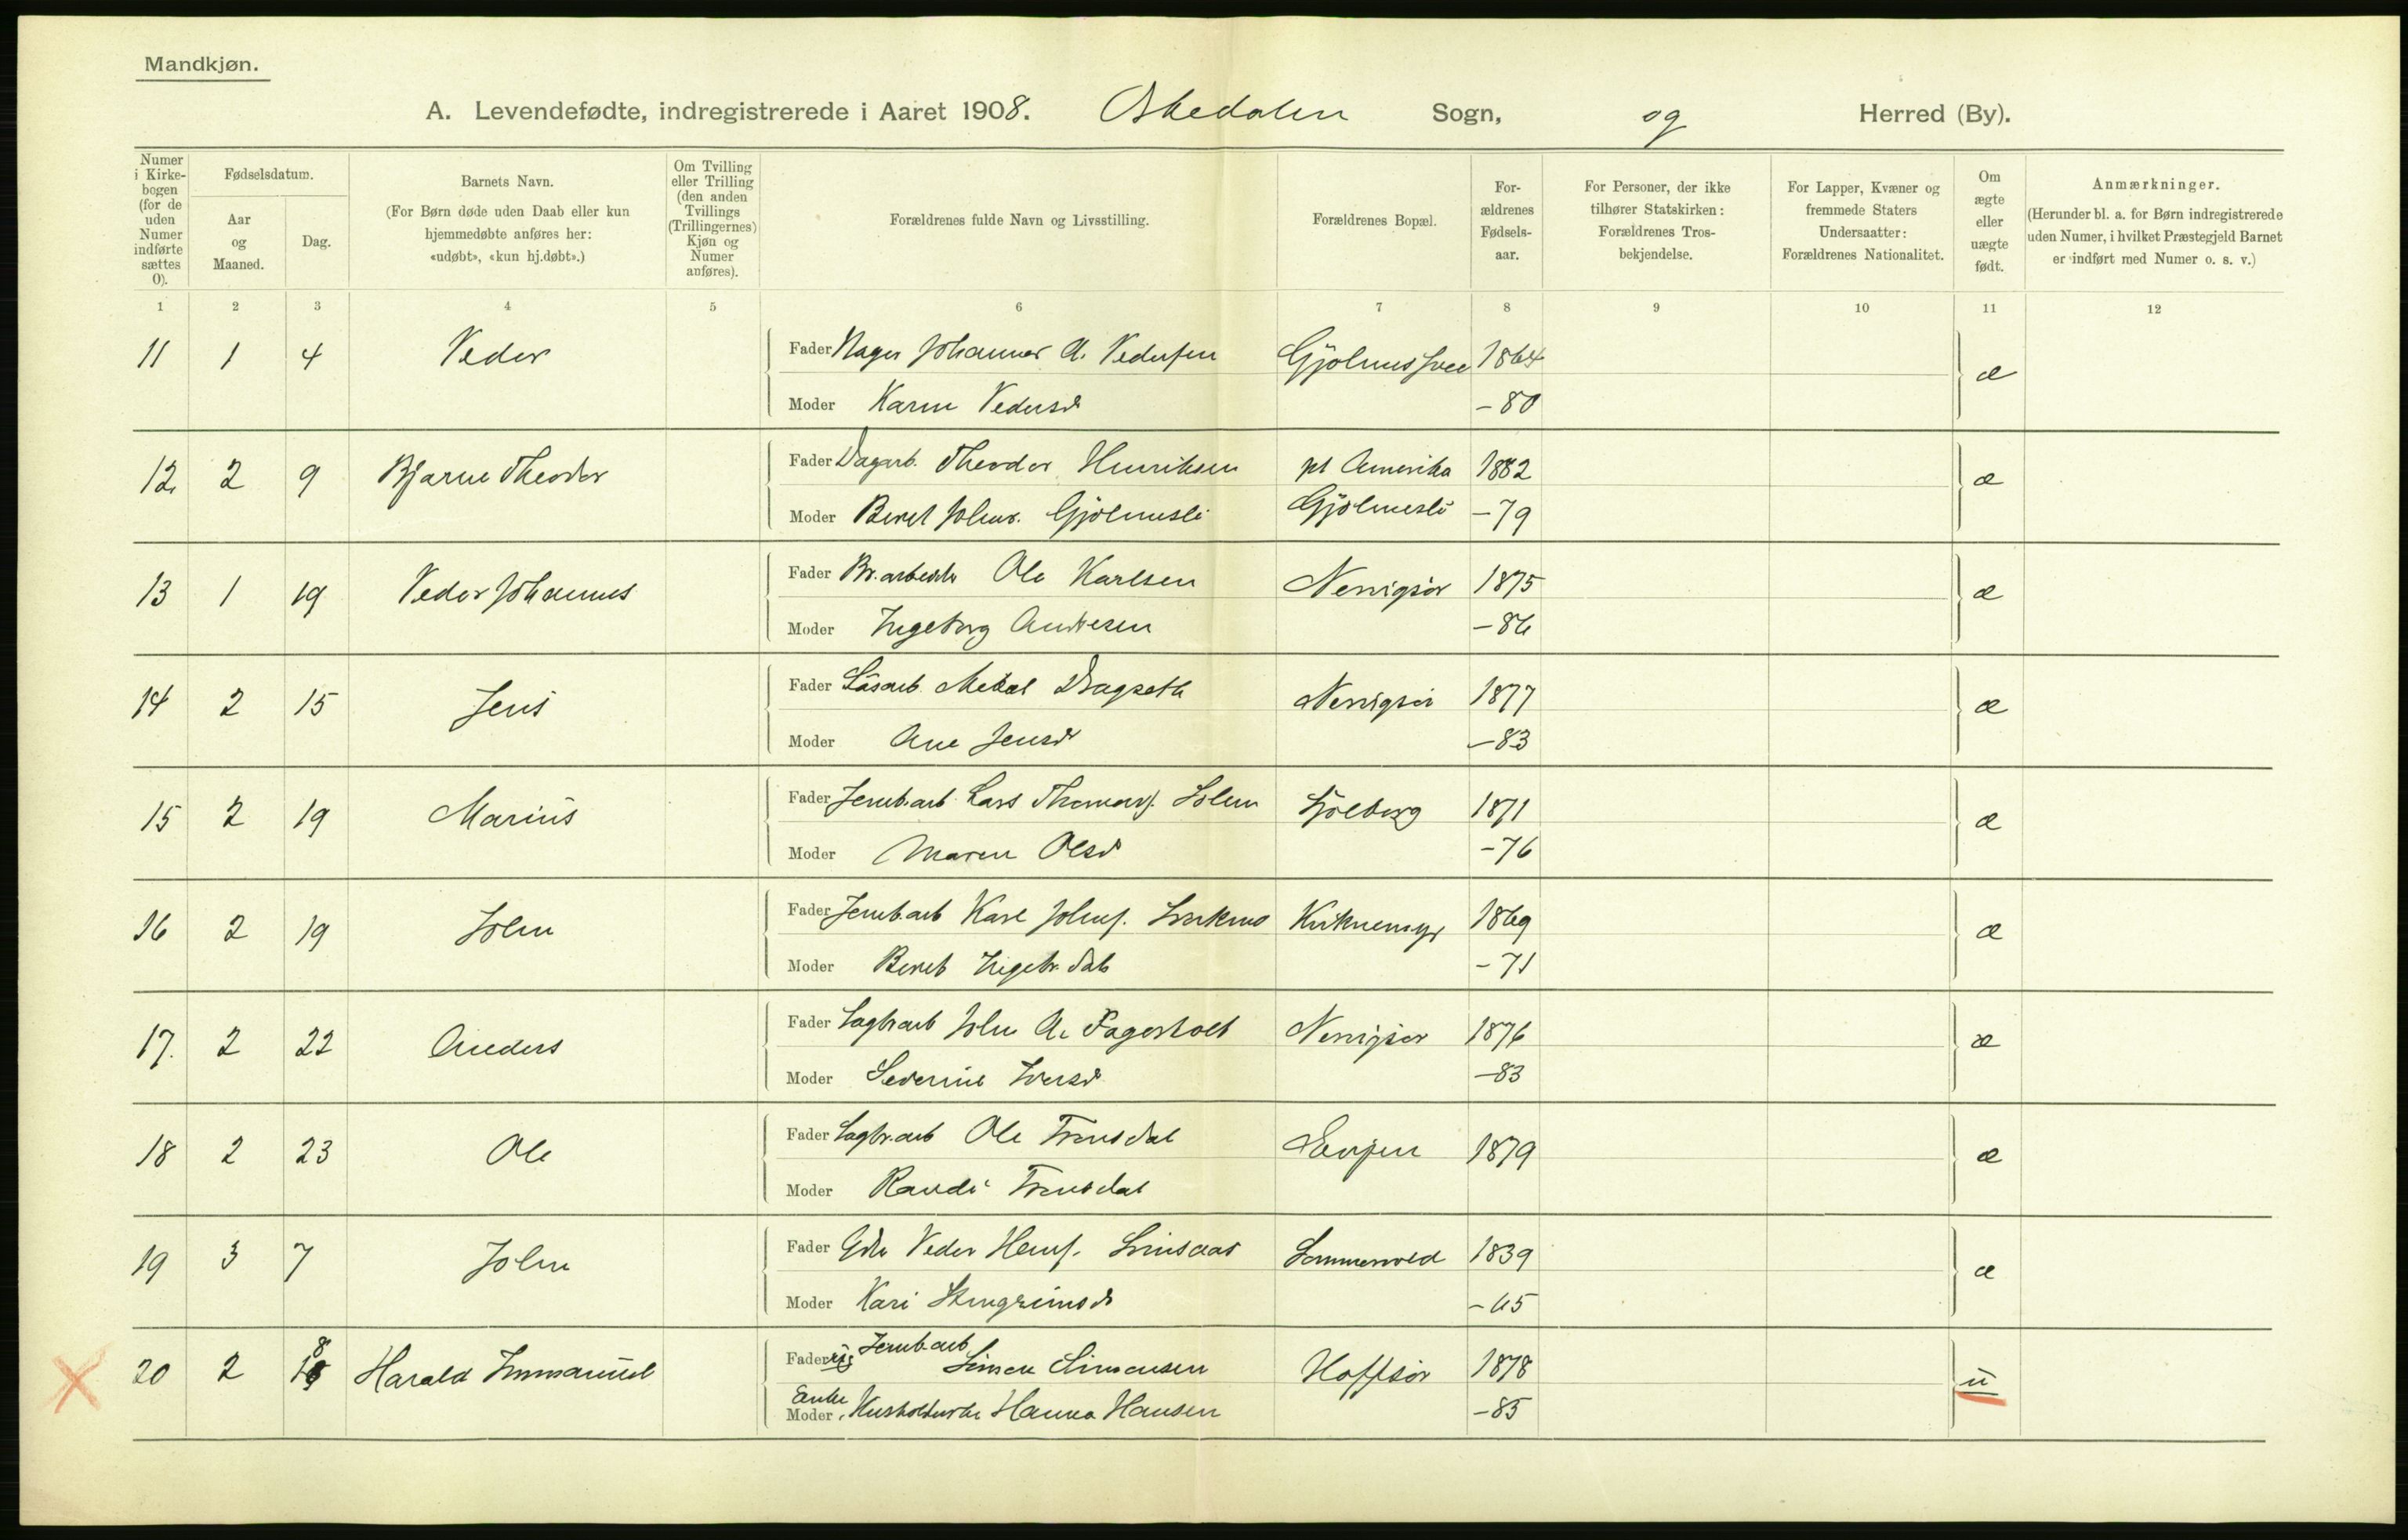 Mandkjøn.
A. Levendefødte, indregistrerede i Aaret 1908. Orkedalen Sogn, og Herred (By).
Numer i Kirkebogen (for de uden Numer indførte sættes 0).
Fødselsdatum.
Aar og Maaned.
Dag.
Barnets Navn.
(For Børn døde uden Daab eller kun
hjemmedøbte anføres her:
«udøbt», «kun hj.døbt».)
Om Tvilling
eller Trilling
(den anden
Tvillings
(Trillingernes)
Kjøn og
Numer
anføres).
Forældrenes fulde Navn og Livsstilling.
Forældrenes Bopæl.
For-
ældrenes
Fødsels-
aar.
For Personer, der ikke
tilhører Statskirken:
Forældrenes Tros-
bekjendelse.
For Lapper, Kvæner og
fremmede Staters
Undersaatter:
Forældrenes Nationalitet.
Om
ægte
eller
uægte
født.
Anmærkninger.
(Herunder bl. a. for Børn indregistrerede
uden Numer, i hvilket Præstegjeld Barnet
er indført med Numer o. s. v.)
1 2 3 4 5 6 7 8 9 10 11 12
11 1 4 Peder Fader Johannes A. Pedersen 1864 æ
Moder Karen Pedersd -80
12 2 9 Bjarne Theodor Fader Dagarb. Theodor Henriksen pt Amerika 1882 æ
Moder Beret Johns. Gjølmesli Gjølmesli -79
13 1 19 Peder Johannes Fader Br.arbeider Ole Karlsen 1875 æ
Moder Ingeborg Andresen -86
14 2 15 Jens Fader Mekal Dragseth 1877 æ
Moder Ane Jensd -83
15 2 19 Marius Fader Jernb.arb Lars Thomass. Solem 1871 æ
Moder Maren Olsd -76
16 2 19 John Fader Jernb.arb Karl Johns. 1869 æ
Moder Beret Ingebr.datr -71
17. 2 22 Anders Fader Sagbr.arb John A. Fagerholt 1876 æ
Moder Severine Iversd -83
18 2 23 Ole Fader Sagbr.arb Ole 1879 æ
Moder Randi
19 3 7 John Fader Gdbr Peder Hans. 1839 æ
Moder Kari Stengrimsd -65
20 2 18 Harald Immanuel Fader Ug Jernb.arb Simon Simonsen Hoffsør 1878 u
Moder Enke, Husholderske Hanna Hansen -85